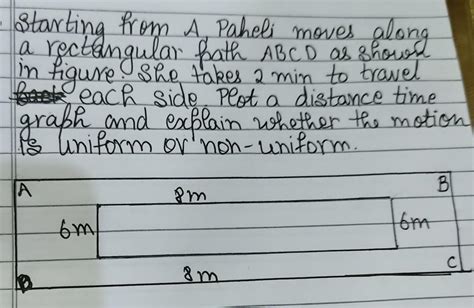 Starting from A, Paheli moves along
a rectangular path ABCD as showd
in figure. She takes 2 min to travel
each side. Plot a distance time
graph and explain whether the motion
is uniform or non-uniform.
A
B
8m
6m
6m
8m
D
C